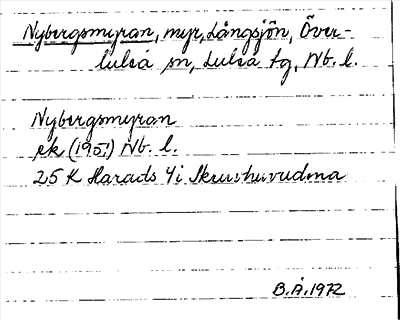 Nybergsmyran, myr, Långsjön, Över-
luleå sn, Luleå tg, Nb. l.
Nybergsmyran
ek (1951) Nb. l.
25 K Harads 4i Skruvhuvudma
B.Å. 1972